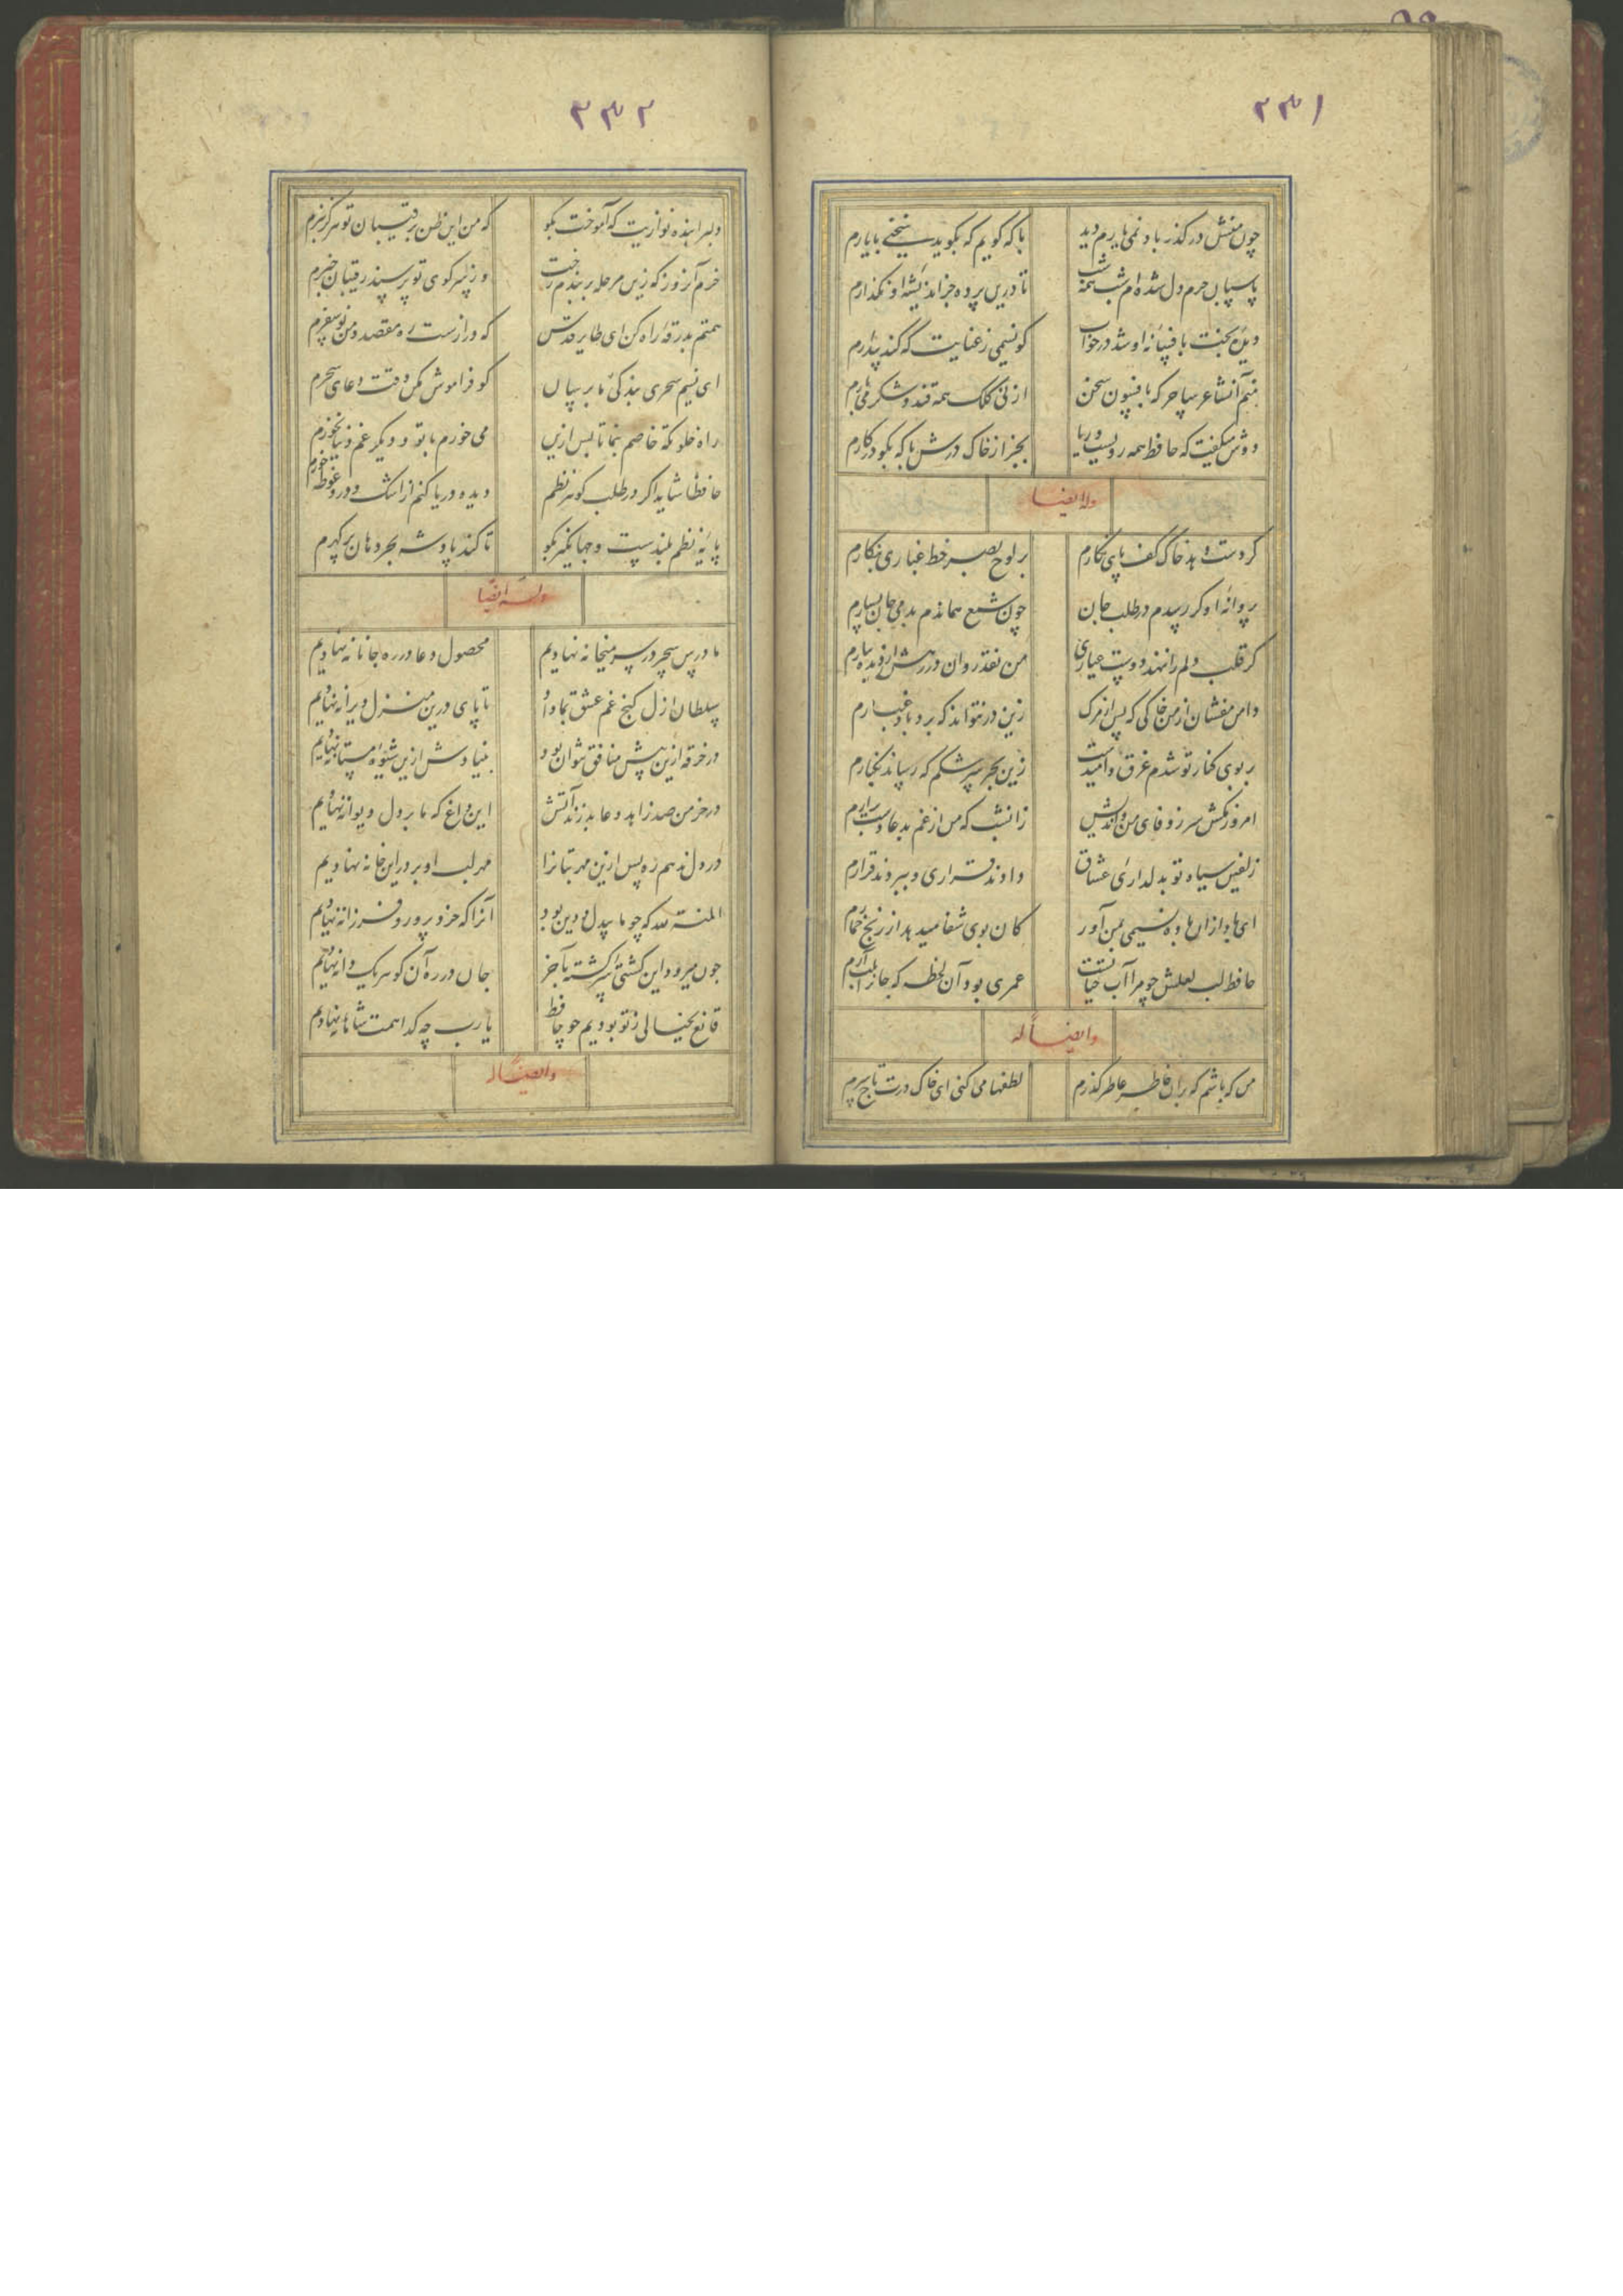 ۲۳۱
چون منش در گذر باد نمی یارم دید
با که گویم که بگوید سخنی با یارم
پاسبان حرم دل شده ام شب همه شب
تا درین پرده جز اندیشه او نگذارم
دیده بخت بافسانه او شد در خواب
کو نسیمی ز عنایت که کند بیدارم
منم آن شاعر ساحر که بافسون سخن
از نی کلک همه قند و شکر می بارم
دوش میگفت که حافظ همه رویست و ریا
بجز از خاک درش با که بگو در کارم
وله ایضا
گر دست دهد خاک کف پای نگارم
بر لوح بصر خط غباری بنگارم
پروانه او گر رسدم در طلب جان
چون شمع هماندم بدمی جان بسپارم
گر قلب دلم را ننهد دوست عیاری
من نقد روان در رهش از دیده ببارم
دامن مفشان از من خاکی که پس از مرگ
زین در نتواند که برد باد غبارم
بر بوی کنار تو شدم غرق و امیدست
زین بحر سرشکم که رساند بکنارم
امروز مکش سر ز وفای من و اندیش
زان شب که من از غم بدعا دست برارم
زلفین سیاه تو بدلداری عشاق
دادند قراری و ببردند قرارم
ای باد ازان باده نسیمی بمن آور
کان بوی شفا میدهد از رنج خمارم
حافظ لب لعلش چو مرا آب حیاتست
عمری بود آن لحظه که جان را بلب آرم
وایضاً له
من که باشم که بران خاطر عاطر گذرم
لطفها می کنی ای خاک درت تاج سرم
۲۳۲
دلبرا بنده نوازیت که آموخت بگو
که من این ظن برقیبان تو هرگز نبرم
خرم آن روز کزین مرحله بر بندم رخت
وز سر کوی تو پرسند رقیبان خبرم
همتم بدرقه راه کن ای طایر قدس
که درازست ره مقصد و من نو سفرم
ای نسیم سحری بندگی ما برسان
کو فراموش مکن وقت دعای سحرم
راه خلوتگه خاصم بنما تا پس ازین
می خورم با تو و دیگر غم دنیا نخورم
حافظا شاید اگر در طلب گوهر نظم
دیده دریا کنم از اشک و درو غوطه خورم
پایه نظم بلندست و جهانگیر بگو
تا کند پادشه بحر دهان پر گهرم
وله ایضاً
ما درس سحر در سر میخانه نهادیم
محصول دعا در ره جانانه نهادیم
سلطان ازل گنج غم عشق بما داد
تا پای درین منزل ویرانه نهادیم
در خرقه ازین پیش منافق نتوان بود
بنیادش ازین شیوه مستانه نهادیم
در خرمن صد زاهد و عابد زند آتش
این داغ که ما بر دل دیوانه نهادیم
در دل ندهم ره پس ازین مهر بتانرا
مهر لب او بر در این خانه نهادیم
المنة لله که چو ما بیدل و دین بود
آنرا که خرد پرور و فرزانه نهادیم
چون میرود این کشتی سرگشته بآخر
جان در ره آن گوهر یک دانه نهادیم
قانع بخیالی ز تو بودیم چو حافظ
یا رب چه گدا همت شاهانه نهادیم
وایضاً له